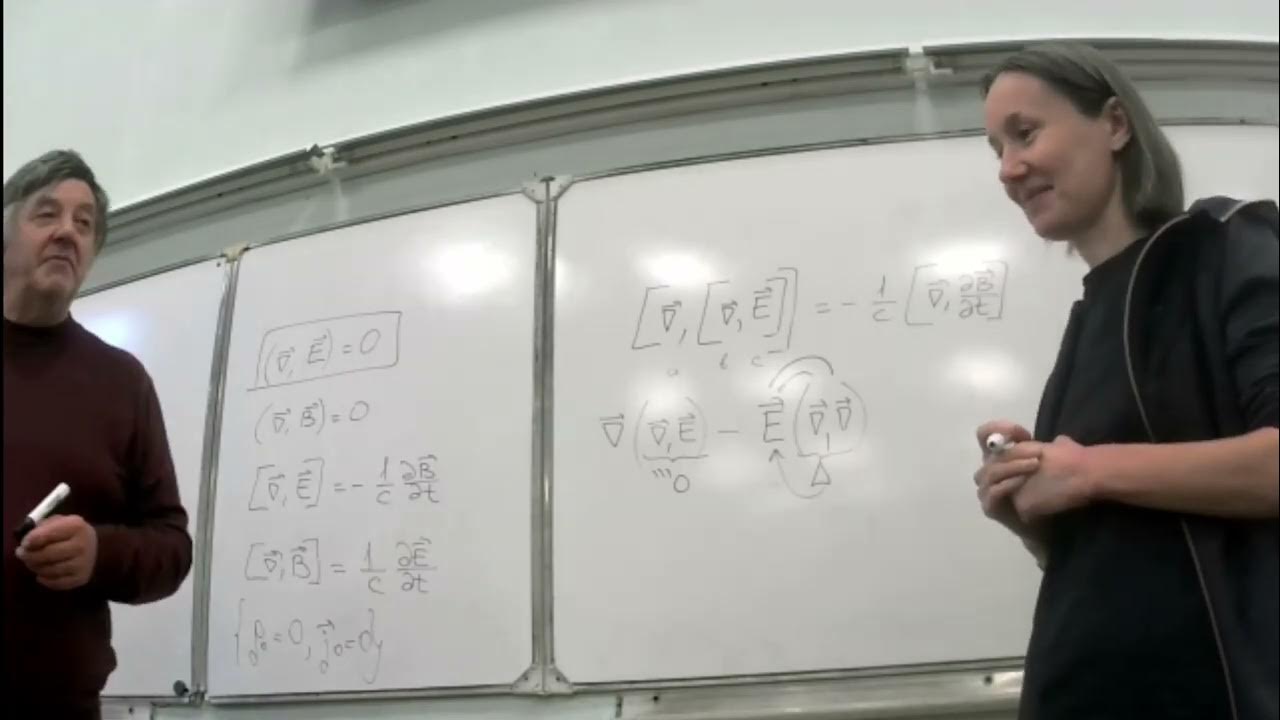 (∇⃗, E⃗) = 0
(∇⃗, B⃗) = 0
[∇⃗, E⃗] = - 1/c ∂B⃗/∂t
[∇⃗, B⃗] = 1/c ∂E⃗/∂t
{ρ₀ = 0, j⃗₀ = 0}
[∇⃗, [∇⃗, E⃗]] = - 1/c [∇⃗, ∂B⃗/∂t]
a b c
∇⃗ (∇⃗, E⃗) - E⃗ (∇⃗, ∇⃗)
0 Δ